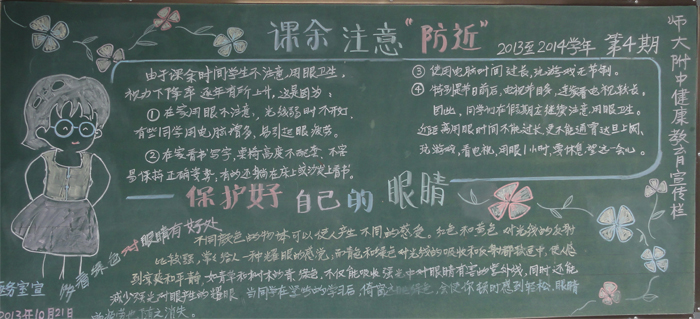 课余注意"防近"
2013至2014学年 第4期
师大附中健康教育宣传栏
由于课余时间学生不注意用眼卫生,
视力下降率逐年有所上升,这是因为:
① 在家用眼不注意,光线弱时不开灯,
有些同学用电脑增多,易引起眼疲劳。
② 在家看书写字,桌椅高度不配套,不容
易保持正确姿势,有的还躺在床上或沙发上看书。
③ 使用电脑时间过长,玩游戏无节制。
④ 特别是节日前后,电视节目多,连续看电视较长。
因此,同学们在假期应继续注意用眼卫生。
近距离用眼时间不能过长,更不能通宵达旦上网、
玩游戏,看电视,用眼1小时,要休息
保护好自己的眼睛
看绿色对眼睛有好处
不同颜色的物体可以使人产生不同的感受。红色和黄色对光线的反射
比较强,常给人一种耀眼的感觉;而青色和绿色对光线的吸收和反射都较适中,使人感
到凉爽和平静。大青草和树木的青绿色,不仅能吸收强光中对眼睛有害的紫外线,同时还能
减少强光对眼产生的耀眼
当同学在紧张的学习后,
会使你顿时感到轻松,眼睛
消失。
务室宣
2013年10月21日